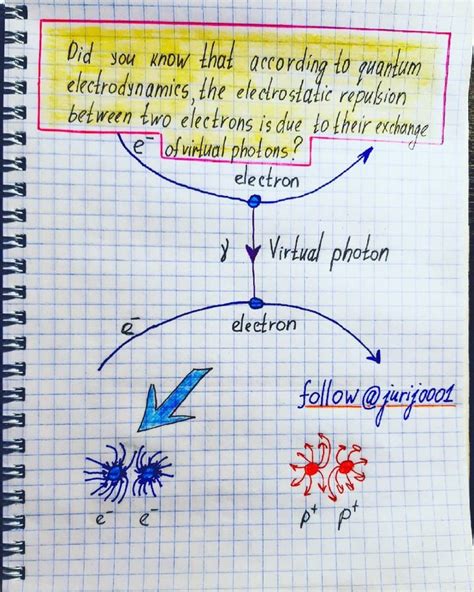 Did you know that according to quantum
electrodynamics, the electrostatic repulsion
between two electrons is due to their exchange
of virtual photons?
e⁻
electron
γ Virtual photon
e⁻
electron
follow @jurij0001
e⁻ e⁻
p⁺ p⁺